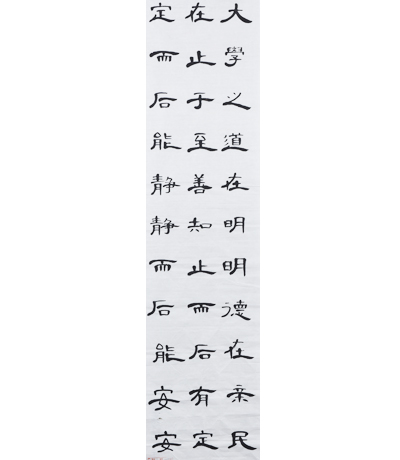 大學之道在明明德在亲民
在止于至善知止而后有定
定而后能静静而后能安安